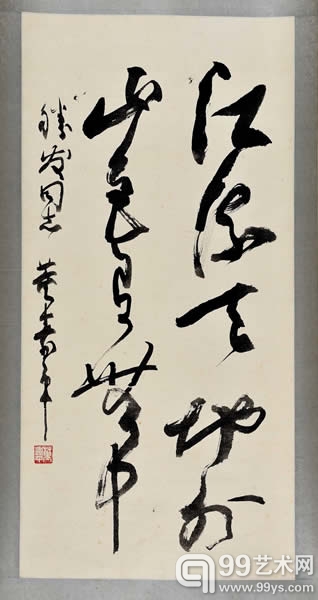 江流天地外
山色有無中
同志 董壽平
99艺术网
www.99ys.com